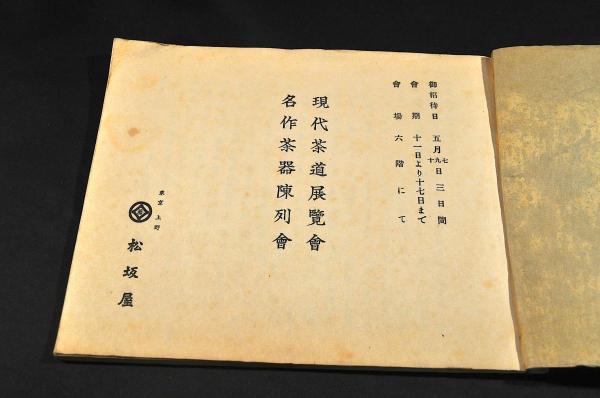 御招待日 五月七九十日 三日間
會期 十一日より十七日まで
會場 六階にて
現代茶道展覽會
名作茶器陳列會
東京 上野
松坂屋